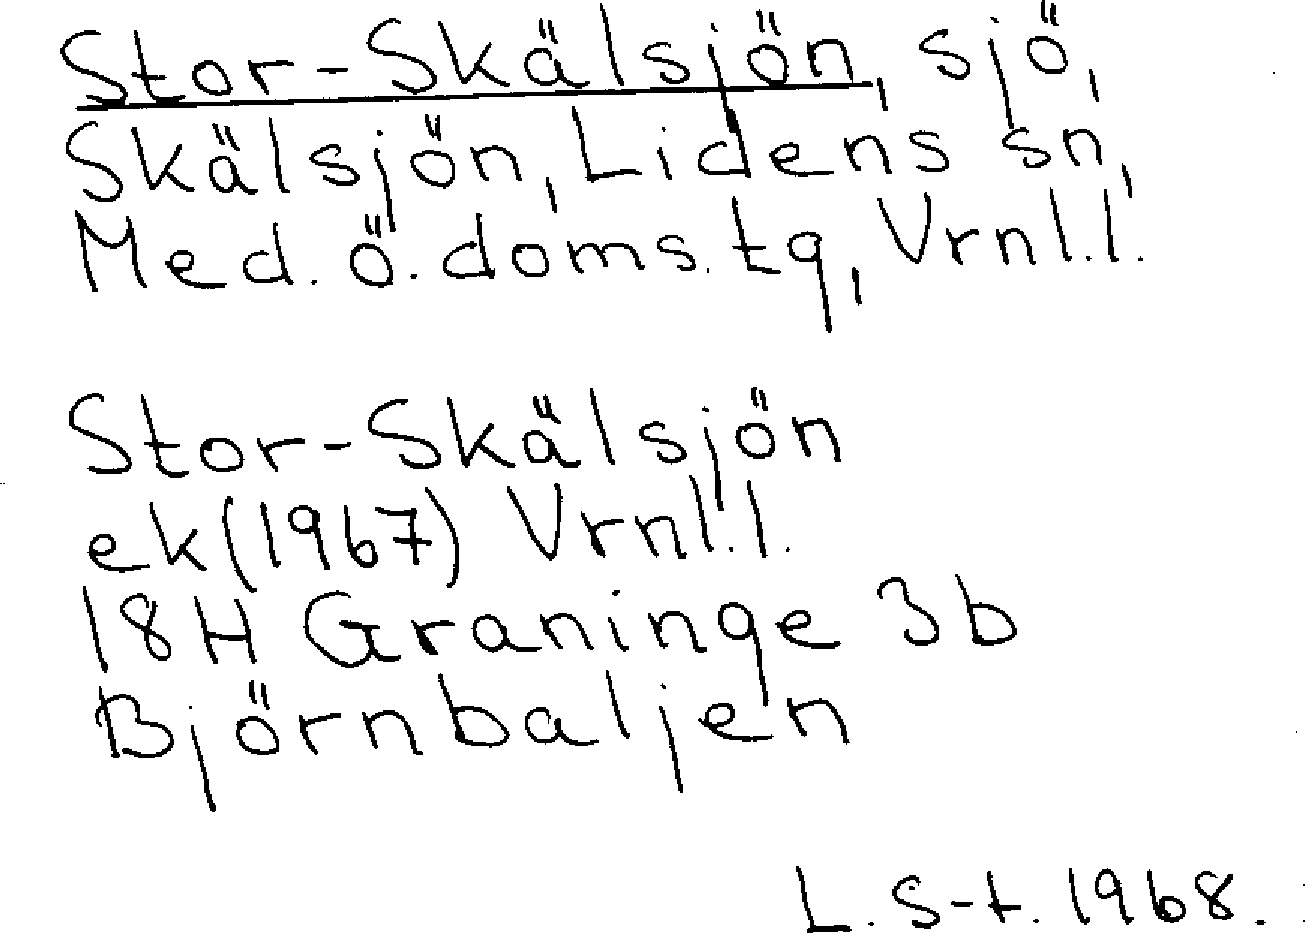 Stor-Skälsjön, sjö,
Skälsjön, Lidens sn,
Med. ö. doms. tg, Vrnl. l.
Stor-Skälsjön
ek (1967) Vrnl. l.
18H Graninge 3b
Björnbaljen
L. S-t. 1968.